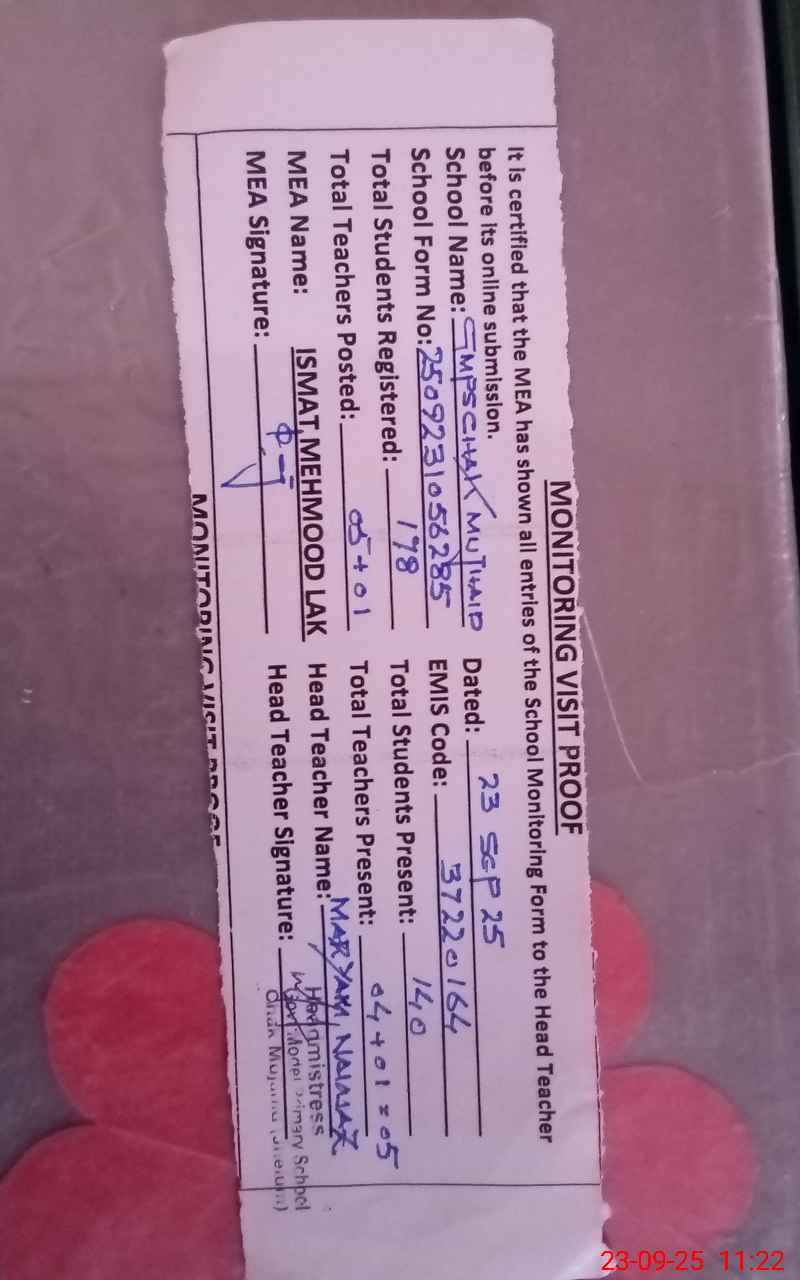 MONITORING VISIT PROOF
It is certified that the MEA has shown all entries of the School Monitoring Form to the Head Teacher
before its online submission.
School Name: GMPS CHAK MUJHAID Dated: 23 SEP 25
School Form No: 2509231056285 EMIS Code: 37220164
Total Students Registered: 198 Total Students Present: 140
Total Teachers Posted: 05+01 Total Teachers Present: 04+01=05
MEA Name: ISMAT MEHMOOD LAK Head Teacher Name: MARYAM
MEA Signature: Head Teacher Signature:
Headmistress
Govt Model Primary School
Chak
MONITORING VISIT PROOF
23-09-25 11:22